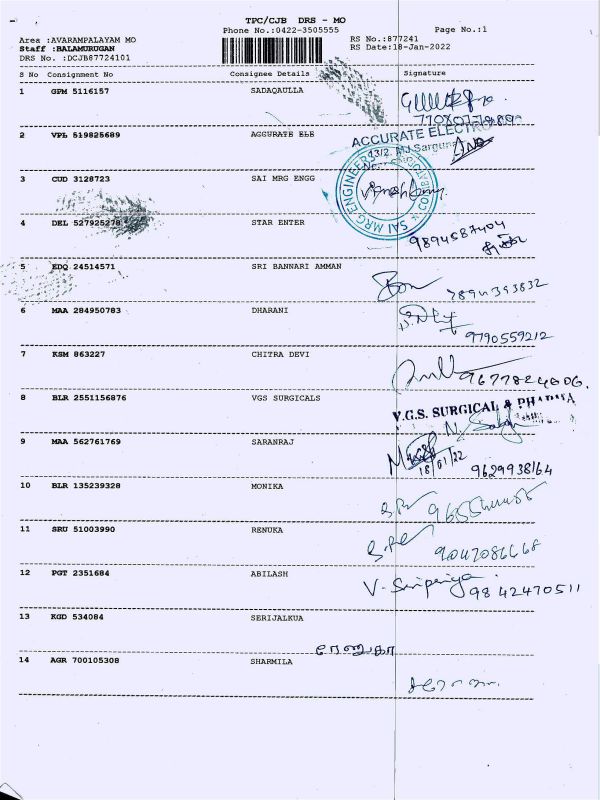 TPC/CJB DRS - MO
Phone No.:0422-3505555
Page No.:1
Area :AVARAMPALAYAM MO
RS No.:877241
Staff :BALAMURUGAN
RS Date:18-Jan-2022
DRS No. :DCJB87724101
S No Consignment No Consignee Details Signature
1 GPM 5116157 SADAQAULLA
2 VPL 519825689 ACCURATE ELE
ACCURATE ELECTRO
3 CUD 3128723 SAI MRG ENGG
SAI MRG ENGINEERS
4 DEL 527925278 STAR ENTER
9894587404
5 EDQ 24514571 SRI BANNARI AMMAN
7894393832
6 MAA 284950783 DHARANI
9790559212
7 KSM 863227 CHITRA DEVI
9677824606.
8 BLR 2551156876 VGS SURGICALS
V.G.S. SURGICAL & PHARMA
9 MAA 562761769 SARANRAJ
18/01/22
9629938164
10 BLR 135239328 MONIKA
11 SRU 51003990 RENUKA
9047086668
12 PGT 2351684 ABILASH
9842470511
13 KGD 534084 SERIJALKUA
ரேணுகா
14 AGR 700105308 SHARMILA